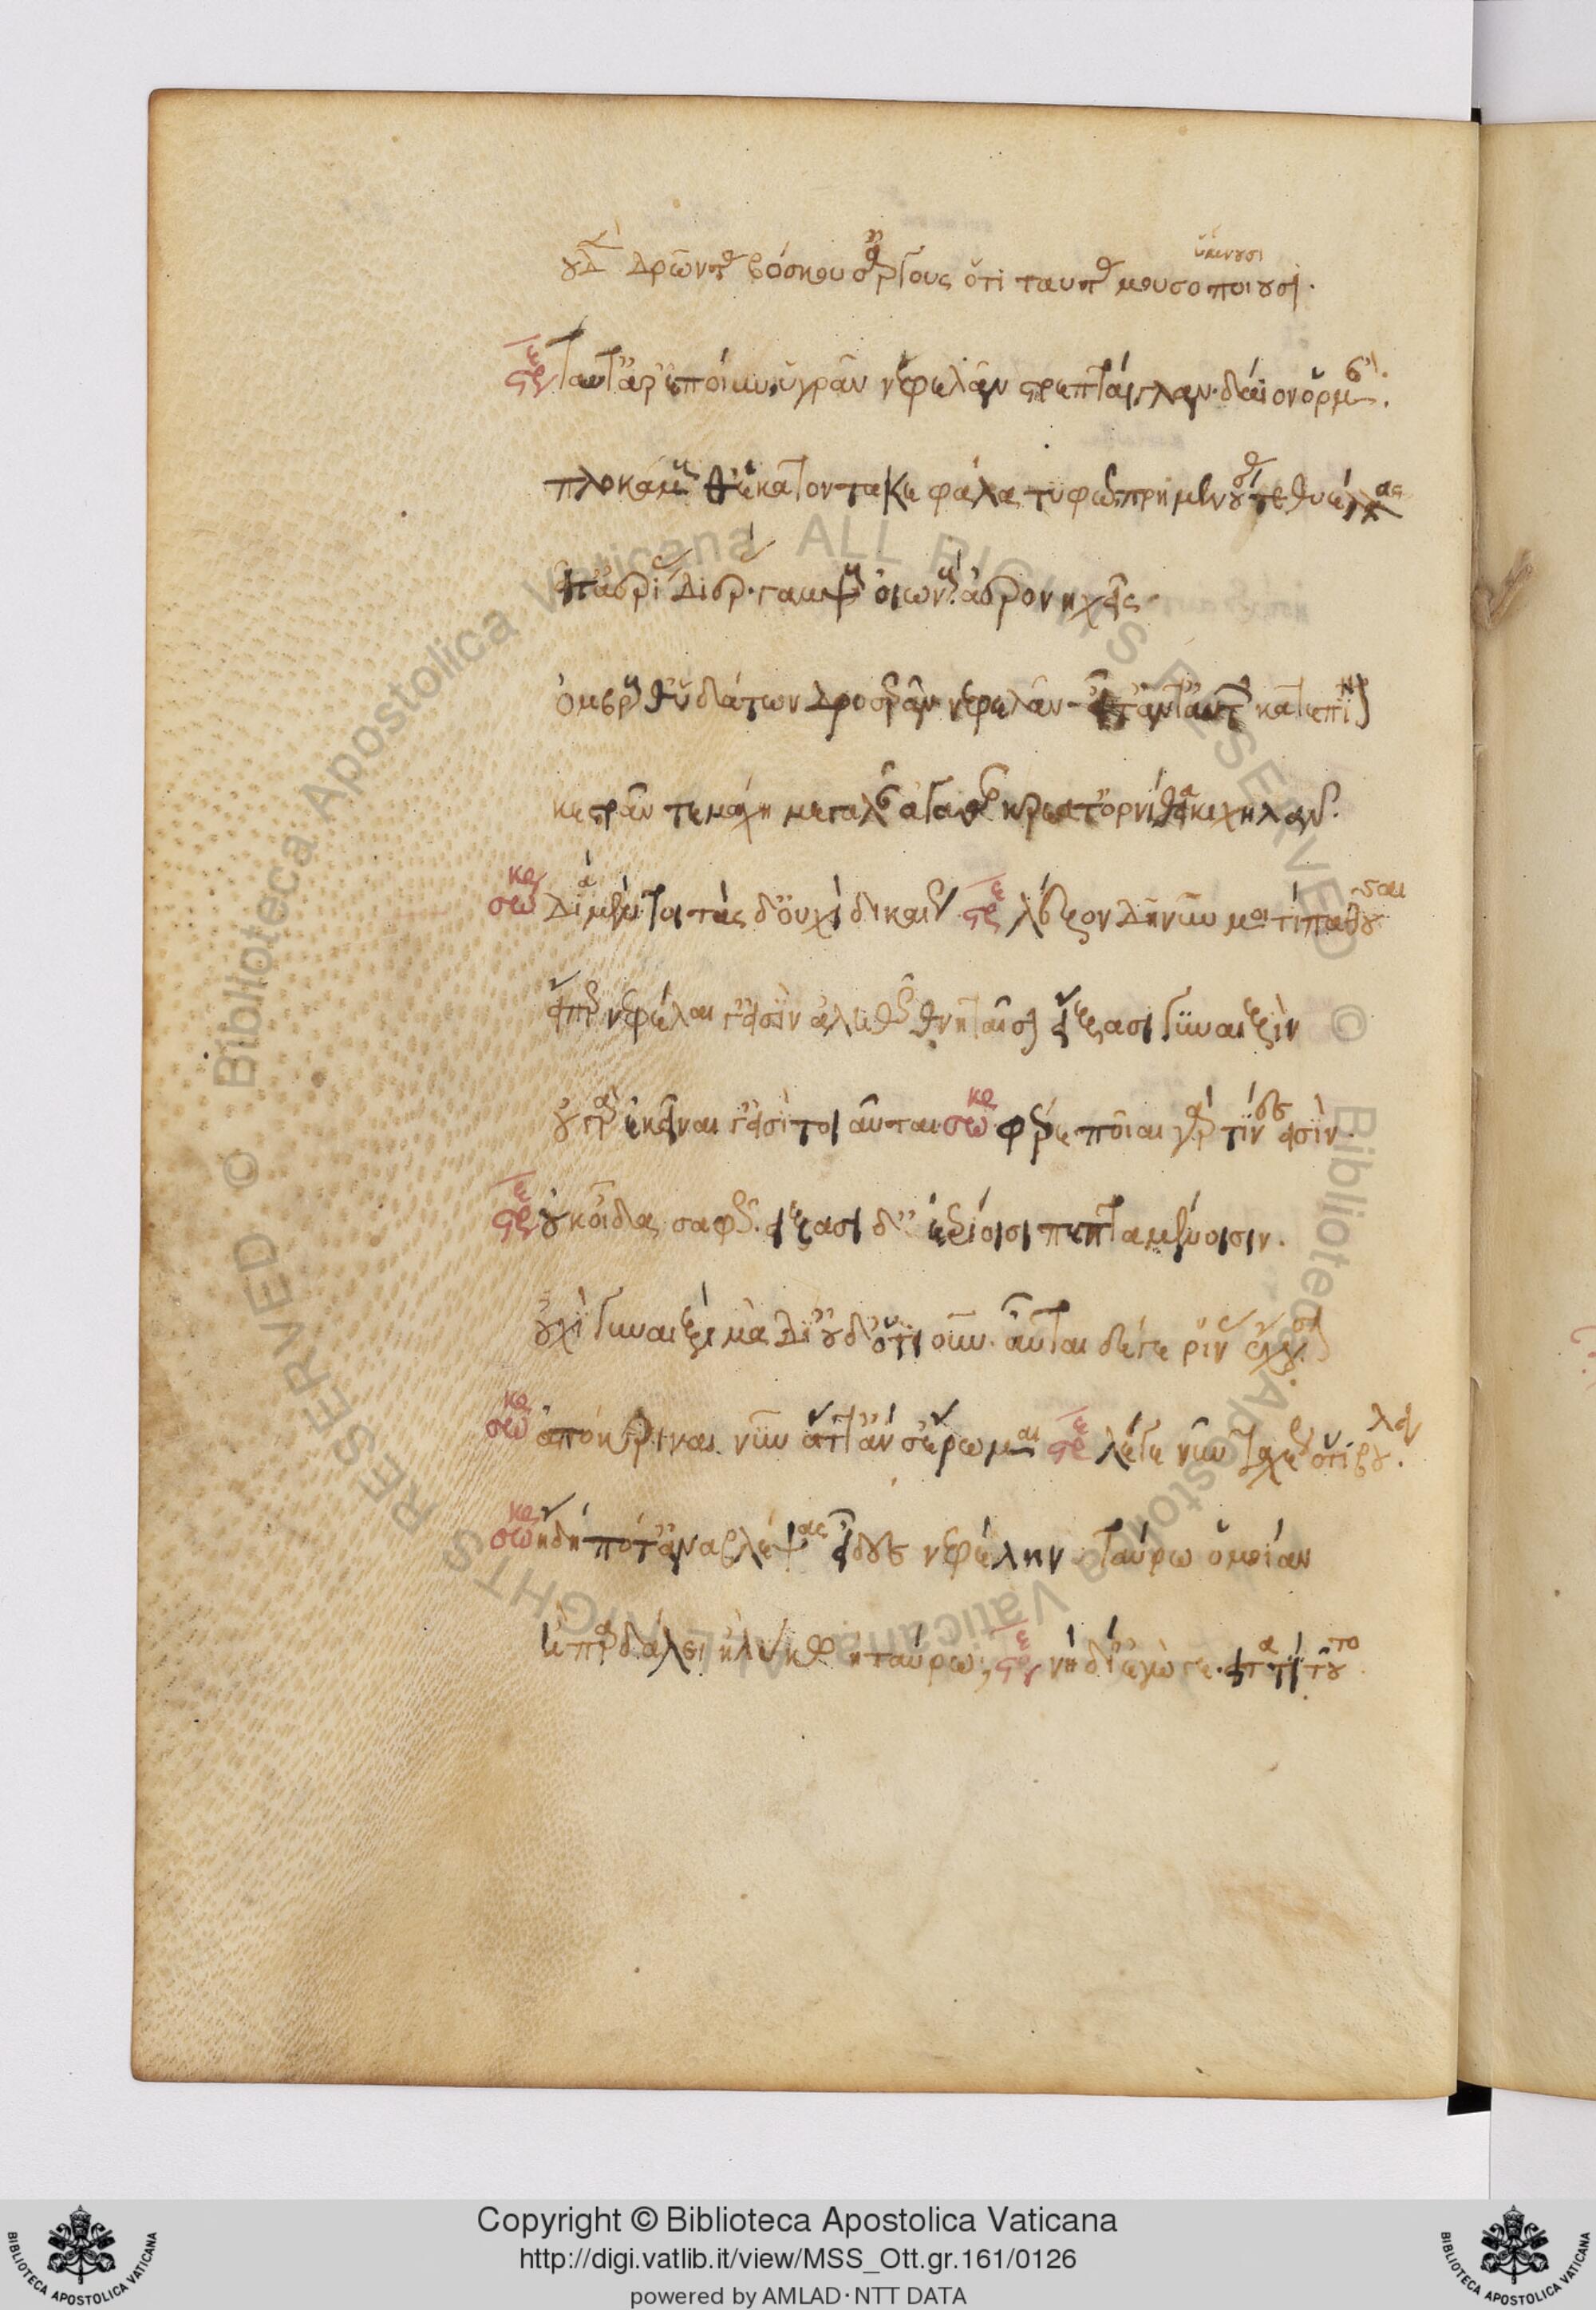 οὐδὲν δρῶντας βόσκουσ' ἀργοὺς ὅτι ταύτας μουσοποιοῦσι.
ὑμνοῦσι
στρε ταῦτ' ἄρ' ἐποίουν ὑγρᾶν νεφελᾶν στρεπταίγλαν δάϊον ὁρμάν.
πλοκάμους θ' ἑκατοντακεφάλα τυφῶ πρημαινούσας τε θυέλλας
εἶτ' ἀερίας διεράς. γαμψοὺς οἰωνοὺς ἀερονηχεῖς
ὄμβρους θ' ὑδάτων δροσερᾶν νεφελᾶν εἶτ' ἀντ' αὐτῶν κατέπινον
κεστρᾶν τεμάχη μεγαλᾶν ἀγαθᾶν κρέατ' ὀρνίθεια κιχηλᾶν.
σωκρ διὰ μέντοι τάσδ' οὐχὶ δικαίως στρε λέξον δὴ νῦν μοι τί παθοῦσαι
εἴπερ νεφέλαι γ' εἰσὶν ἀληθῶς θνηταῖς εἴξασι γυναιξὶν
οὐ γὰρ ἐκεῖναι γ' εἰσὶ τοιαῦται σωκρ φέρε ποῖαι γάρ τινές εἰσιν.
στρε οὐκ οἶδα σαφῶς. εἴξασι δ' ἐρίοισι πεπταμένοισιν.
οὐχὶ γυναιξὶ μὰ Δί' οὐδ' ὁτιοῦν. αὗται δέ γε ῥῖνας ἔχουσι
σωκρ ἀπόκριναι νῦν ἅττ' ἂν σ' ἔρωμαι στρε λέγε νῦν ταχέως ὅτι βούλει.
σωκρ ἤδη ποτ' ἀναβλέψας εἶδες νεφέλην ταύρω ὁμοίαν
ἢ παρδάλει ἢ λύκω ἢ ταύρω; στρε νὴ δί' ἔγωγε. εἶτα τί τοῦτο
Copyright © Biblioteca Apostolica Vaticana
http://digi.vatlib.it/view/MSS_Ott.gr.161/0126
powered by AMLAD·NTT DATA